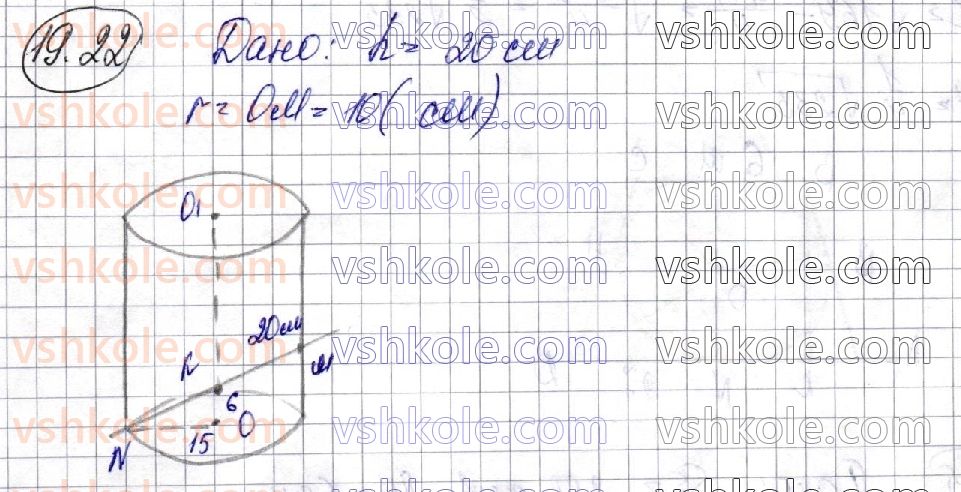 19.22 Дано: h = 20 см
r = OM = 10 (см)
O₁
20 см
K
M
6
O
15
N
vshkole.com vshkole.com vshkole.com
vshkole.com vshkole.com vshkole.com
vshkole.com vshkole.com vshkole.com
vshkole.com vshkole.com vshkole.com
vshkole.com vshkole.com vshkole.com
vshkole.com vshkole.com vshkole.com